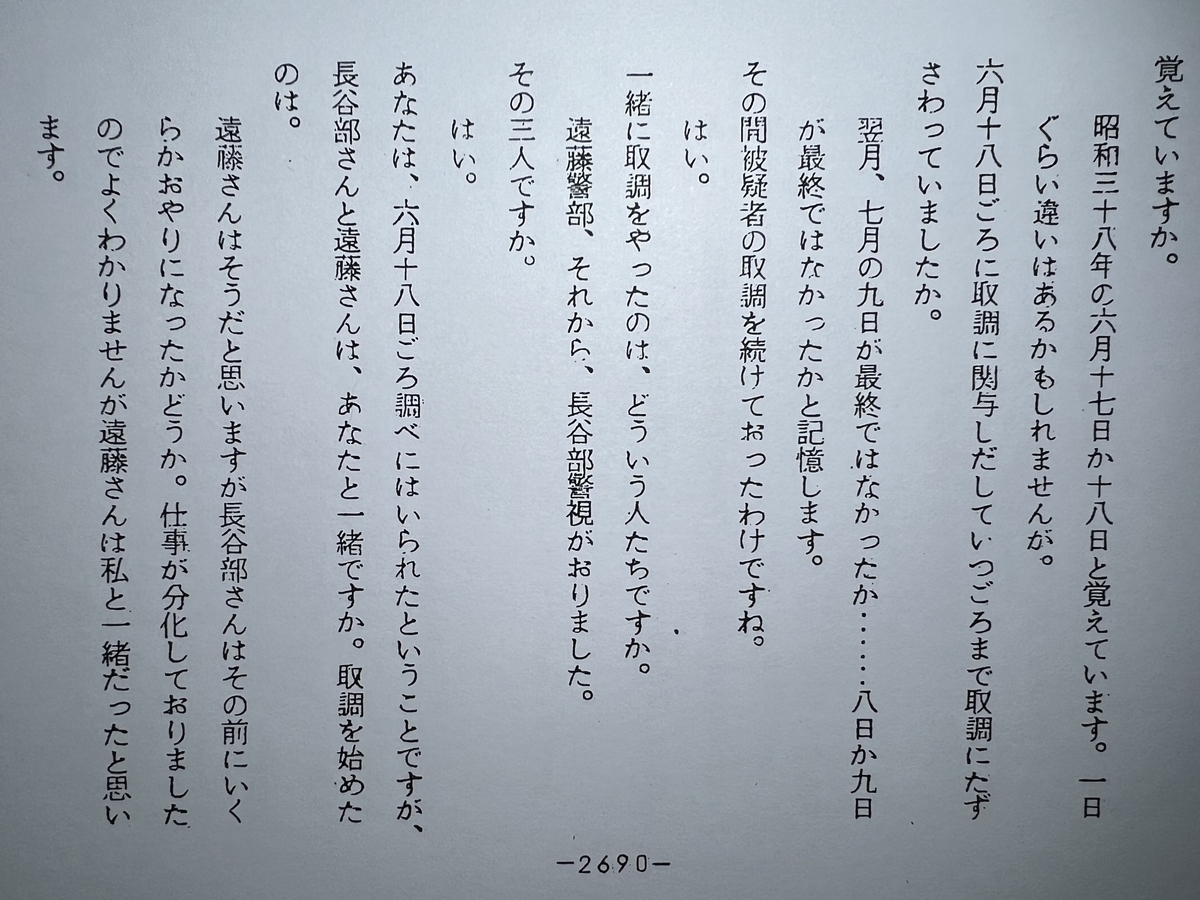 覚えていますか。
昭和三十八年の六月十七日か十八日と覚えています。一日
ぐらい違いはあるかもしれませんが。
六月十八日ごろに取調に関与しだしていつごろまで取調にたず
さわっていましたか。
翌月、七月の九日が最終ではなかったか......八日か九日
が最終ではなかったかと記憶します。
その間被疑者の取調を続けておったわけですね。
はい。
一緒に取調をやったのは、どういう人たちですか。
遠藤警部、それから、長谷部警視がおりました。
その三人ですか。
はい。
あなたは、六月十八日ごろ調べにはいられたということですが、
長谷部さんと遠藤さんは、あなたと一緒ですか。取調を始めた
のは。
遠藤さんはそうだと思いますが長谷部さんはその前にいく
らかおやりになったかどうか。仕事が分化しておりました
のでよくわかりませんが遠藤さんは私と一緒だったと思い
ます。
—2690—